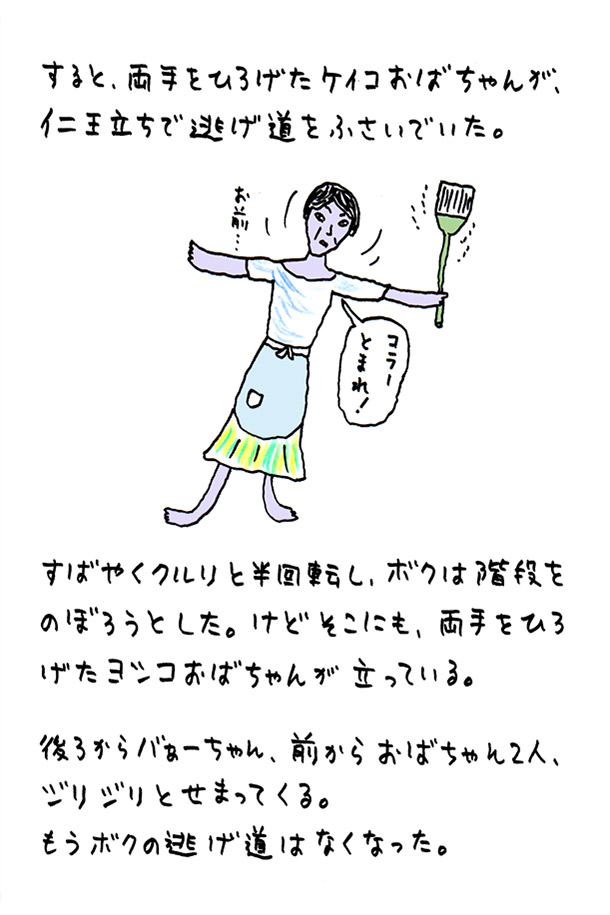 すると、両手をひろげたケイコおばちゃんが、
仁王立ちで逃げ道をふさいでいた。
お前…
コラー
とまれ!
すばやくクルリと半回転し、ボクは階段を
のぼろうとした。けどそこにも、両手をひろ
げたヨシコおばちゃんが立っている。
後ろからバぁーちゃん、前からおばちゃん2人、
ジリジリとせまってくる。
もうボクの逃げ道はなくなった。